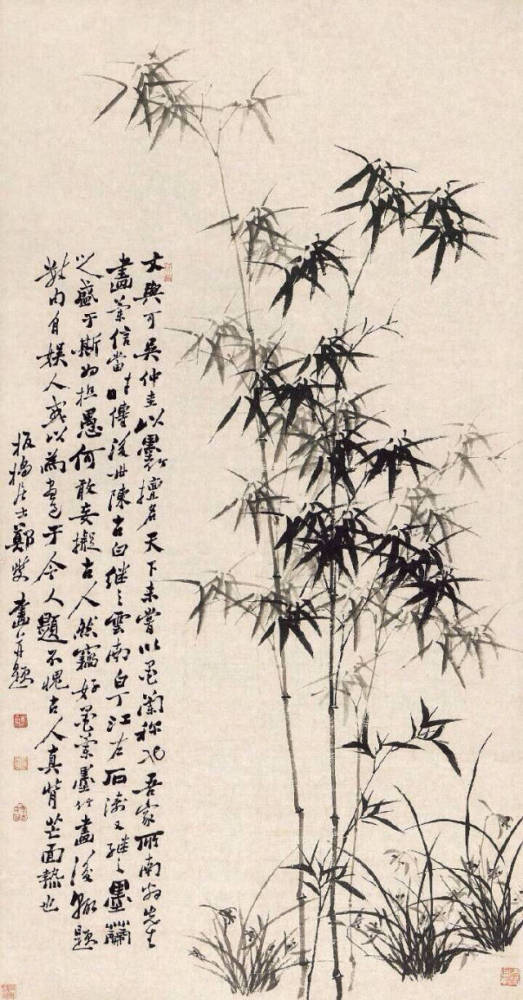 文與可吳仲圭以墨竹擅名天下未嘗以墨蘭称也吾家所南翁先生
畫蘭信當時傳後世陳古白継之雲南白丁江左石濤又継之墨蘭
之盛于斯為極愚何敢妄擬古人然竊好墨蘭墨竹畫後輙題
數句自娱人或以為畫過于今人題不愧古人真背芒面熱也
板橋居士鄭燮畫并題